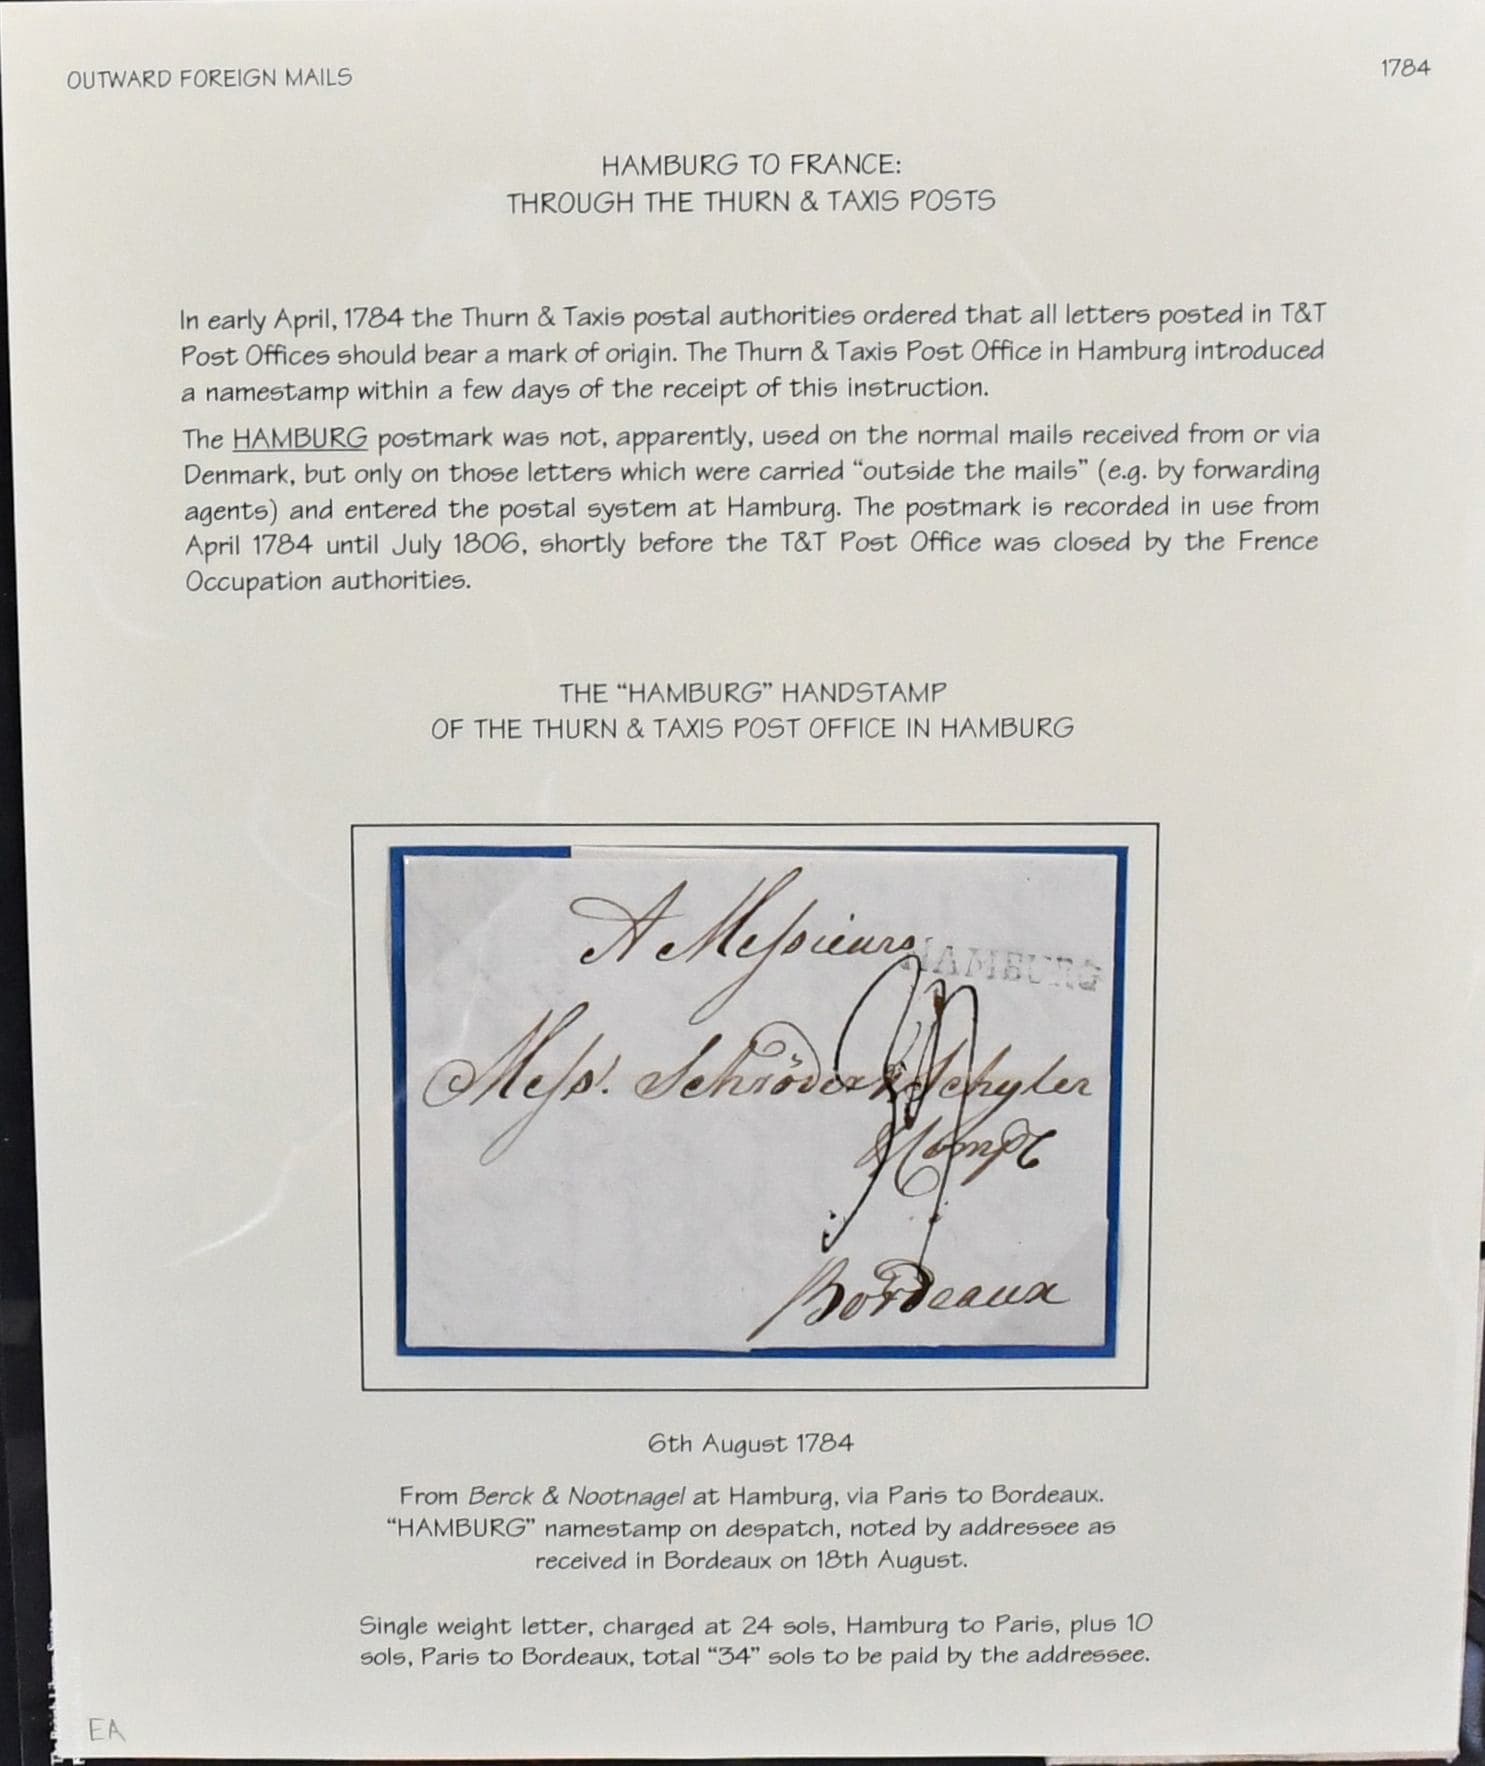 OUTWARD FOREIGN MAILS
1784
HAMBURG TO FRANCE:
THROUGH THE THURN & TAXIS POSTS
In early April, 1784 the Thurn & Taxis postal authorities ordered that all letters posted in T&T
Post Offices should bear a mark of origin. The Thurn & Taxis Post Office in Hamburg introduced
a namestamp within a few days of the receipt of this instruction.
The HAMBURG postmark was not, apparently, used on the normal mails received from or via
Denmark, but only on those letters which were carried “outside the mails” (e.g. by forwarding
agents) and entered the postal system at Hamburg. The postmark is recorded in use from
April 1784 until July 1806, shortly before the T&T Post Office was closed by the Frence
Occupation authorities.
THE “HAMBURG” HANDSTAMP
OF THE THURN & TAXIS POST OFFICE IN HAMBURG
A Messieurs
HAMBURG
Mess. Schröder & Schyler
Comp
Bordeaux
6th August 1784
From Berck & Nootnagel at Hamburg, via Paris to Bordeaux.
“HAMBURG” namestamp on despatch, noted by addressee as
received in Bordeaux on 18th August.
Single weight letter, charged at 24 sols, Hamburg to Paris, plus 10
sols, Paris to Bordeaux, total “34” sols to be paid by the addressee.
EA